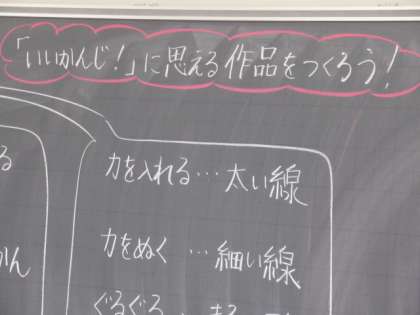 「いいかんじ！」に思える作品をつくろう！
力を入れる…太い線
力をぬく…細い線
ぐるぐる